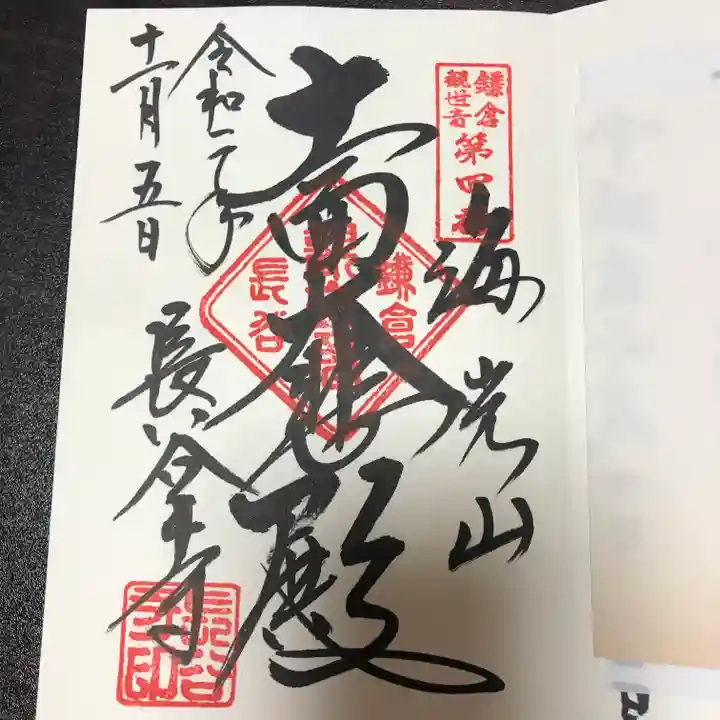 鎌倉
観世音
第四番
海光山
十一面大悲殿
鎌倉
長谷
令和二年
十一月五日
長谷寺